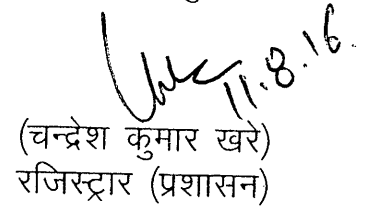 11.8.16.
(चन्द्रेश कुमार खरे)
रजिस्ट्रार (प्रशासन)